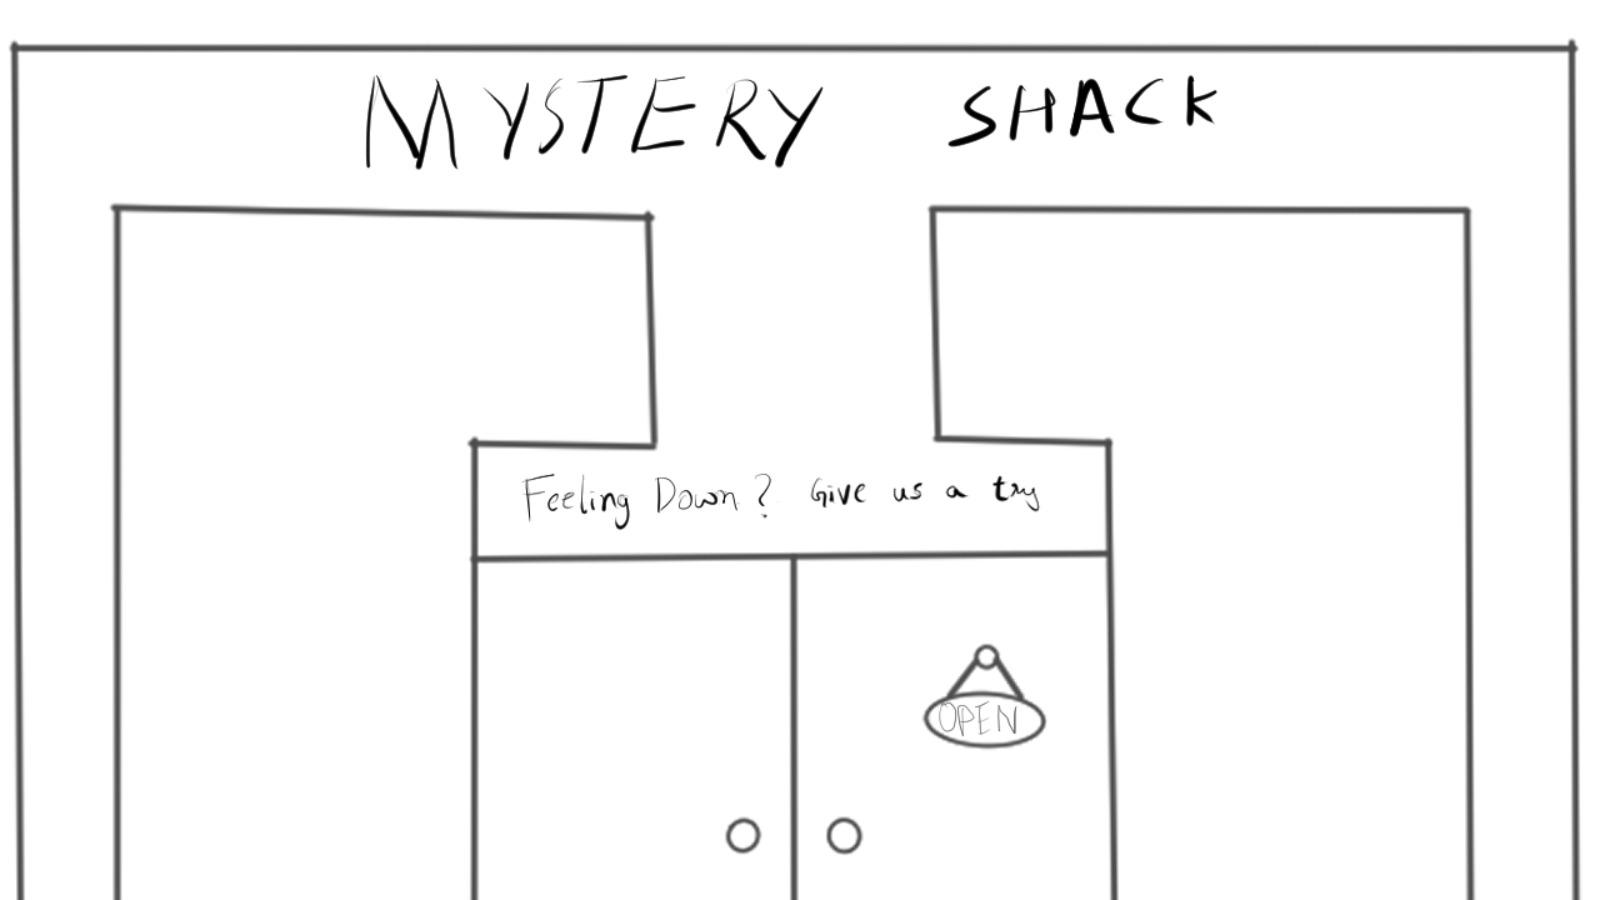 MYSTERY SHACK
Feeling Down? Give us a try
OPEN